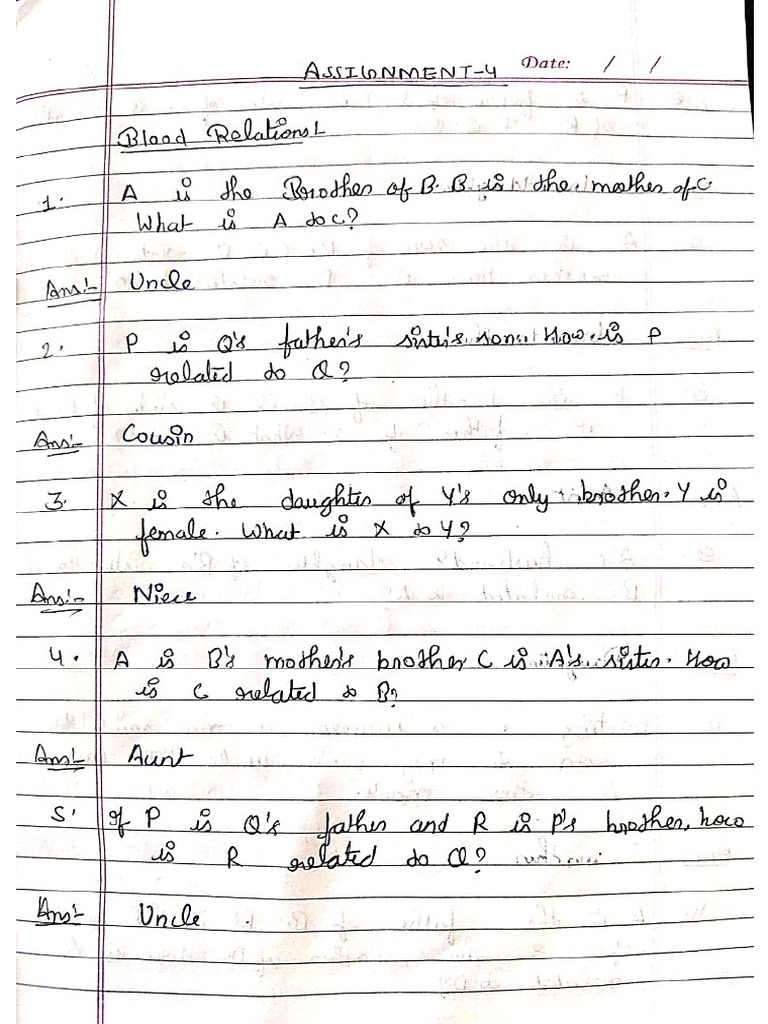 ASSIGNMENT-4 Date: / /
Blood Relations:
1. A is the Brother of B. B is the mother of C.
What is A to C?
Ans:- Uncle
2. P is Q's father's sister's son. How is P
related to Q?
Ans:- Cousin
3. X is the daughter of Y's only brother. Y is
female. What is X to Y?
Ans:- Niece
4. A is B's mother's brother C is A's sister. How
is C related to B?
Ans:- Aunt
5. If P is Q's father and R is P's brother, how
is R related to Q?
Ans:- Uncle